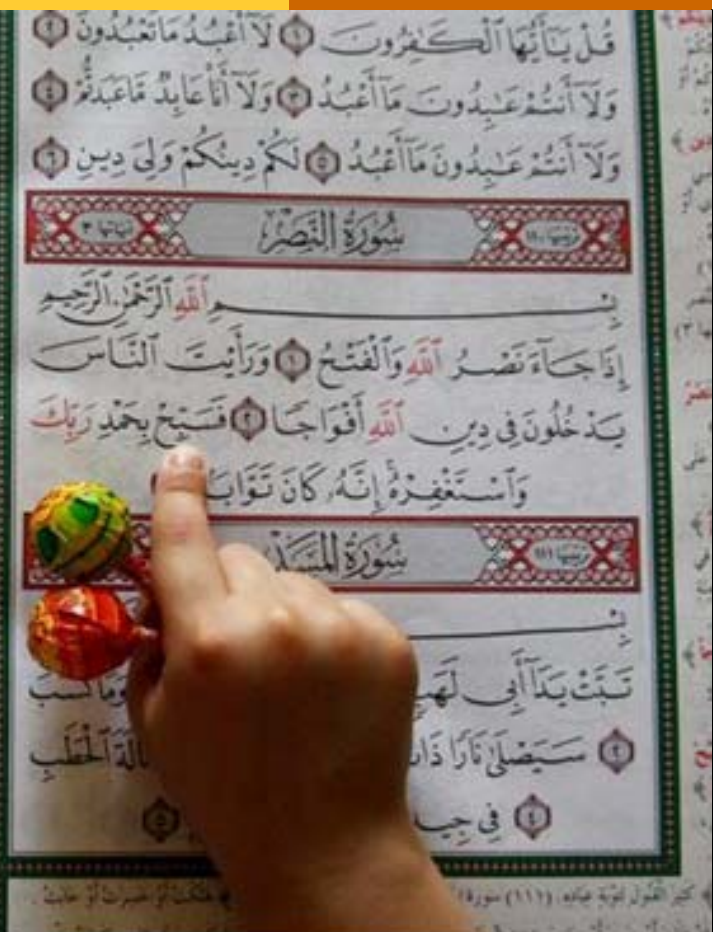 قُلْ يَـٰٓأَيُّهَا ٱلْكَـٰفِرُونَ ١ لَآ أَعْبُدُ مَا تَعْبُدُونَ ٢
وَلَآ أَنتُمْ عَـٰبِدُونَ مَآ أَعْبُدُ ٣ وَلَآ أَنَا۠ عَابِدٌ مَّا عَبَدتُّمْ ٤
وَلَآ أَنتُمْ عَـٰبِدُونَ مَآ أَعْبُدُ ٥ لَكُمْ دِينُكُمْ وَلِىَ دِينِ ٦
ترتيبها ١١٠ سُورَةُ النَّصْرِ آياتها ٣
بِسْمِ ٱللَّهِ ٱلرَّحْمَـٰنِ ٱلرَّحِيمِ
إِذَا جَآءَ نَصْرُ ٱللَّهِ وَٱلْفَتْحُ ١ وَرَأَيْتَ ٱلنَّاسَ
يَدْخُلُونَ فِى دِينِ ٱللَّهِ أَفْوَاجًا ٢ فَسَبِّحْ بِحَمْدِ رَبِّكَ
وَٱسْتَغْفِرْهُ إِنَّهُۥ كَانَ تَوَّابَۢا
ترتيبها ١١١ سُورَةُ المَسَدِ
بِسْـ
تَبَّتْ يَدَآ أَبِى لَهَبٍ وَمَا كَسَبَ
٢ سَيَصْلَىٰ نَارًا ذَاتَ ٱلْحَطَبِ
٤ فِى ٥
(١١١) سورة